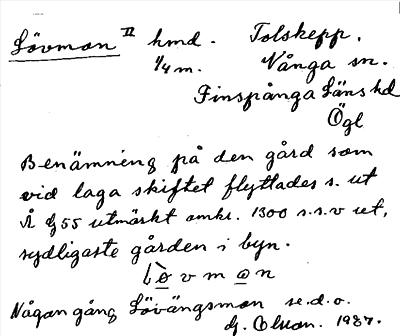 Lövmon II hmd. Tolskepp.
1/4 m. Vånga sn.
Finspånga Läns hd
Ögl
Benämning på den gård som
vid laga skiftet flyttades s. ut
År 1855 utmärkt omkr. 1300 s.s.v ut,
sydligaste gården i byn.
lövmon
Någon gång Lövängsmon se.d.o.
G. Olson. 1927.